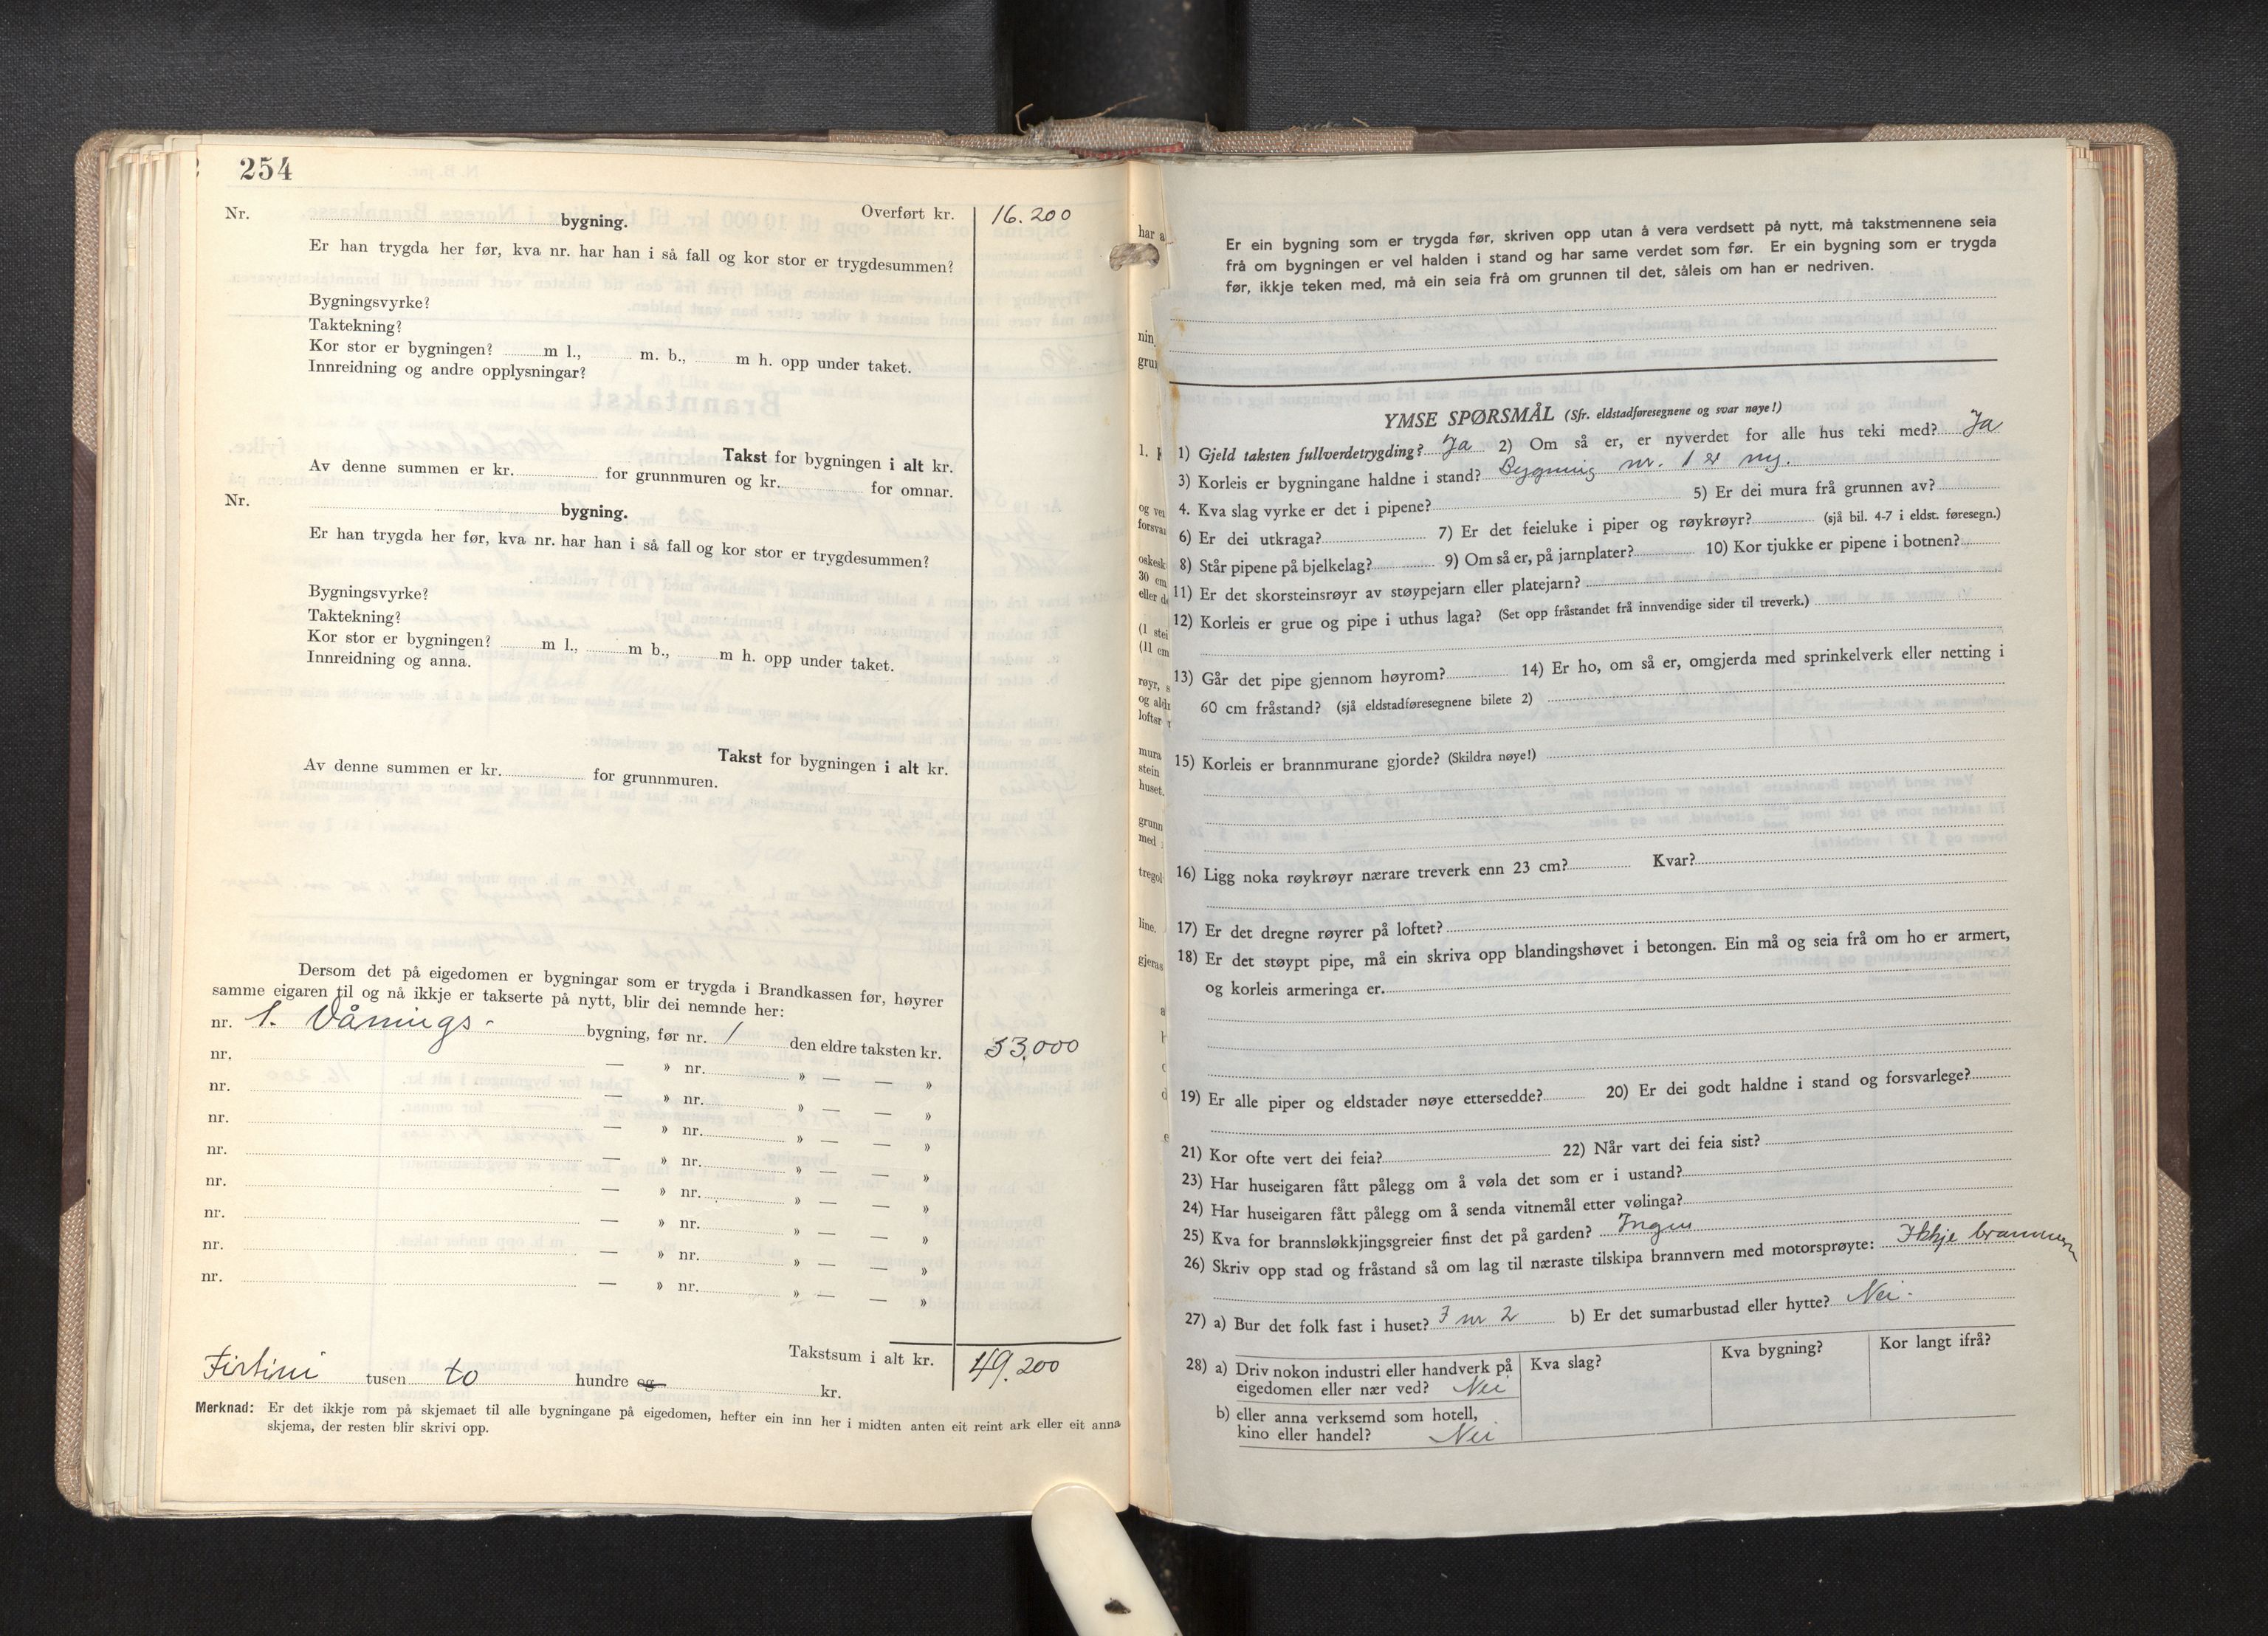 254
Nr. bygning. Overført kr. 16.200
Er han trygda her før, kva nr. har han i så fall og kor stor er trygdesummen?
Bygningsvyrke?
Taktekning?
Kor stor er bygningen? m l., m. b., m h. opp under taket.
Innreidning og andre opplysningar?
Takst for bygningen i alt kr.
Av denne summen er kr. for grunnmuren og kr. for omnar.
Nr. bygning.
Er han trygda her før, kva nr. har han i så fall og kor stor er trygdesummen?
Bygningsvyrke?
Taktekning?
Kor stor er bygningen? m l., m b., m h. opp under taket.
Innreidning og anna.
Takst for bygningen i alt kr.
Av denne summen er kr. for grunnmuren.
Dersom det på eigedomen er bygningar som er trygda i Brandkassen før, høyrer
samme eigaren til og nå ikkje er takserte på nytt, blir dei nemnde her:
nr. 1. Vånings- bygning, før nr. 1 den eldre taksten kr. 33.000
nr. — » nr. » — — »
nr. — » nr. » — — »
nr. — » nr. » — — »
nr. — » nr. » — — »
nr. — » nr. » — — »
nr. — » nr. » — — »
nr. — » nr. » — — »
nr. — » nr. » — — »
Takstsum i alt kr. 49.200
Firtini tusen to hundre og kr.
Merknad: Er det ikkje rom på skjemaet til alle bygningane på eigedomen, hefter ein inn her i midten anten eit reint ark eller eit anna
skjema, der resten blir skrivi opp.
Er ein bygning som er trygda før, skriven opp utan å vera verdsett på nytt, må takstmennene seia
frå om bygningen er vel halden i stand og har same verdet som før. Er ein bygning som er trygda
før, ikkje teken med, må ein seia frå om grunnen til det, såleis om han er nedriven.
YMSE SPØRSMÅL (Sfr. eldstadføresegnene og svar nøye!)
1) Gjeld taksten fullverdetrygding? Ja 2) Om så er, er nyverdet for alle hus teki med? Ja
3) Korleis er bygningane haldne i stand? Bygning nr. 1 er ny.
4. Kva slag vyrke er det i pipene? 5) Er dei mura frå grunnen av?
6) Er dei utkraga? 7) Er det feieluke i piper og røykrøyr? (sjå bil. 4-7 i eldst. føresegn.)
8) Står pipene på bjelkelag? 9) Om så er, på jarnplater? 10) Kor tjukke er pipene i botnen?
11) Er det skorsteinsrøyr av støypejarn eller platejarn?
12) Korleis er grue og pipe i uthus laga? (Set opp fråstandet frå innvendige sider til treverk.)
13) Går det pipe gjennom høyrom? 14) Er ho, om så er, omgjerda med sprinkelverk eller netting i
60 cm fråstand? (sjå eldstadføresegnene bilete 2)
15) Korleis er brannmurane gjorde? (Skildra nøye!)
16) Ligg noka røykrøyr nærare treverk enn 23 cm? Kvar?
17) Er det dregne røyrer på loftet?
18) Er det støypt pipe, må ein skriva opp blandingshøvet i betongen. Ein må og seia frå om ho er armert,
og korleis armeringa er.
19) Er alle piper og eldstader nøye ettersedde? 20) Er dei godt haldne i stand og forsvarlege?
21) Kor ofte vert dei feia? 22) Når vart dei feia sist?
23) Har huseigaren fått pålegg om å vøla det som er i ustand?
24) Har huseigaren fått pålegg om å senda vitnemål etter vølinga?
25) Kva for brannsløkkjingsgreier finst det på garden? Ingen
26) Skriv opp stad og fråstand så om lag til næraste tilskipa brannvern med motorsprøyte: Ikkje brannvern
27) a) Bur det folk fast i huset? I nr 2 b) Er det sumarbustad eller hytte? Nei.
28) a) Driv nokon industri eller handverk på Kva slag? Kva bygning? Kor langt ifrå?
eigedomen eller nær ved? Nei
b) eller anna verksemd som hotell,
kino eller handel? Nei